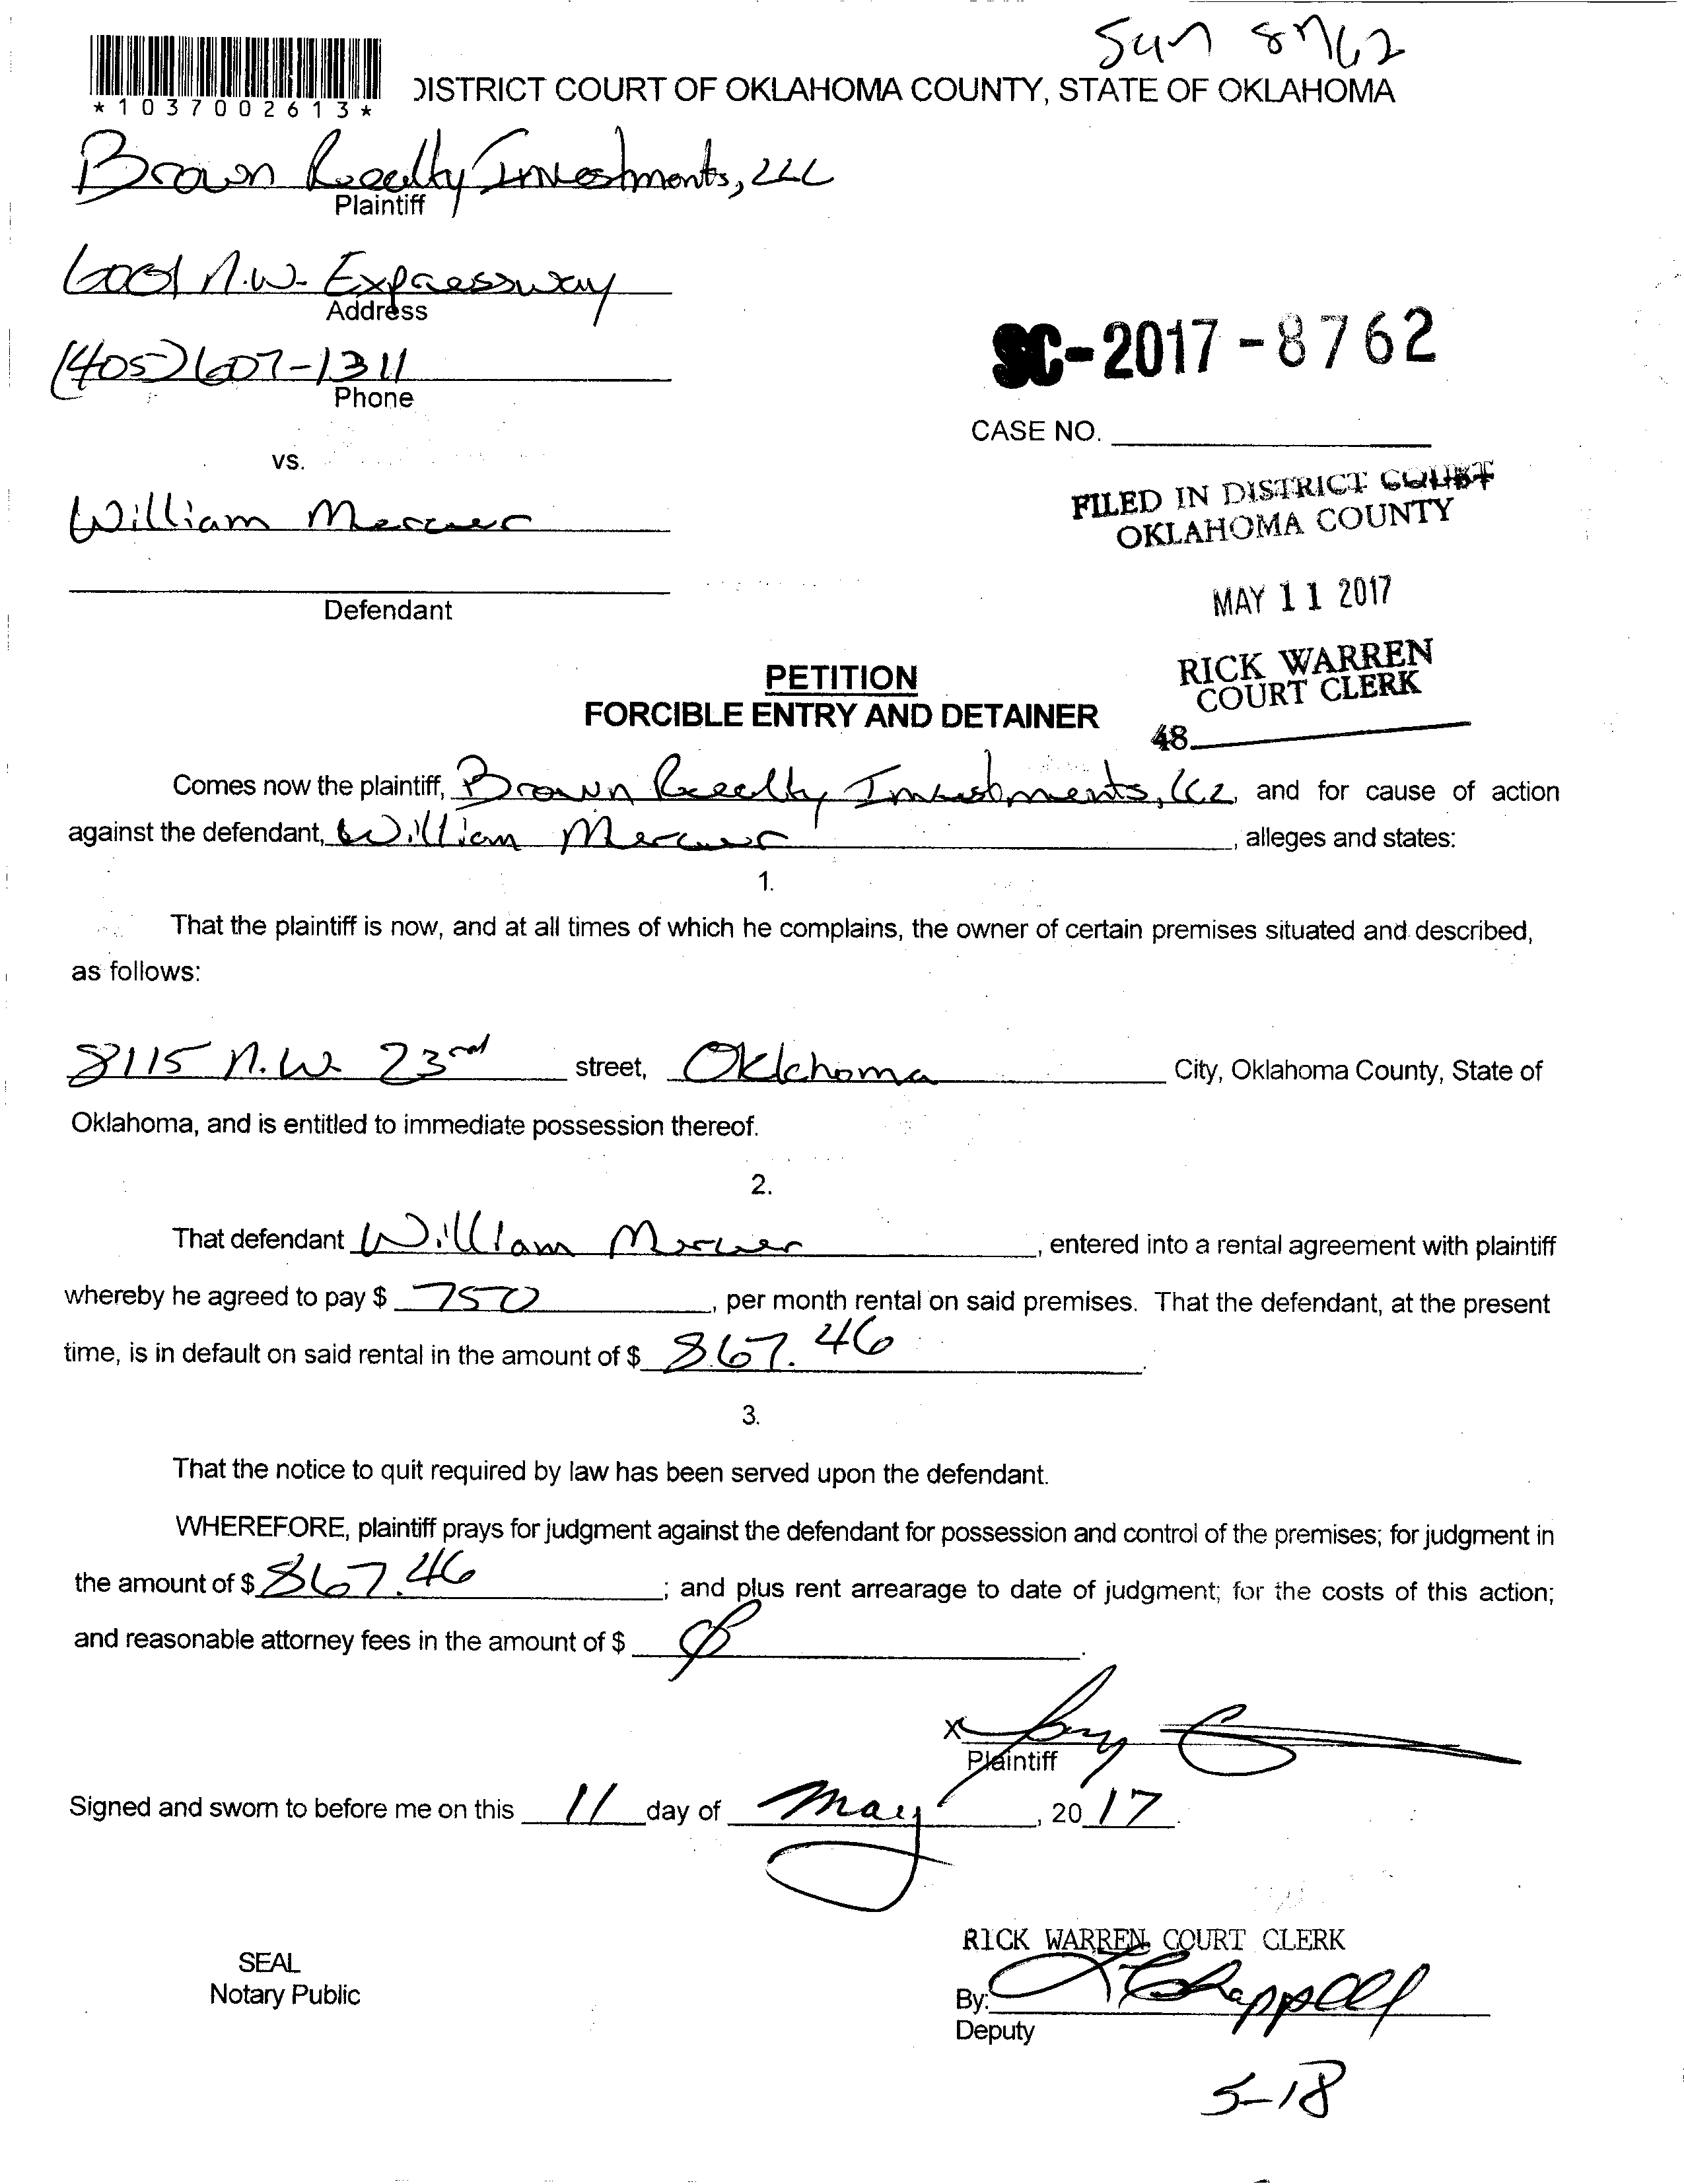 8762
*1037002613*
DISTRICT COURT OF OKLAHOMA COUNTY, STATE OF OKLAHOMA
Brown Realty Investments, LLC
Plaintiff
6001 N.W. Expressway
Address
(405) 607-1311
Phone
SC-2017-8762
CASE NO.
vs.
William Mercer
FILED IN DISTRICT COURT
OKLAHOMA COUNTY
Defendant
MAY 11 2017
RICK WARREN
COURT CLERK
48
PETITION
FORCIBLE ENTRY AND DETAINER
Comes now the plaintiff, Brown Realty Investments, LLC, and for cause of action
against the defendant, William Mercer, alleges and states:
1.
That the plaintiff is now, and at all times of which he complains, the owner of certain premises situated and described,
as follows:
8115 N.W. 23rd street, Oklahoma City, Oklahoma County, State of
Oklahoma, and is entitled to immediate possession thereof.
2.
That defendant William Mercer, entered into a rental agreement with plaintiff
whereby he agreed to pay $ 750, per month rental on said premises. That the defendant, at the present
time, is in default on said rental in the amount of $ 867.46.
3.
That the notice to quit required by law has been served upon the defendant.
WHEREFORE, plaintiff prays for judgment against the defendant for possession and control of the premises; for judgment in
the amount of $ 867.46; and plus rent arrearage to date of judgment; for the costs of this action;
and reasonable attorney fees in the amount of $ Ø.
X
Plaintiff
Signed and sworn to before me on this 11 day of May, 2017.
RICK WARREN COURT CLERK
SEAL
Notary Public
By: Chappell
Deputy
5-18